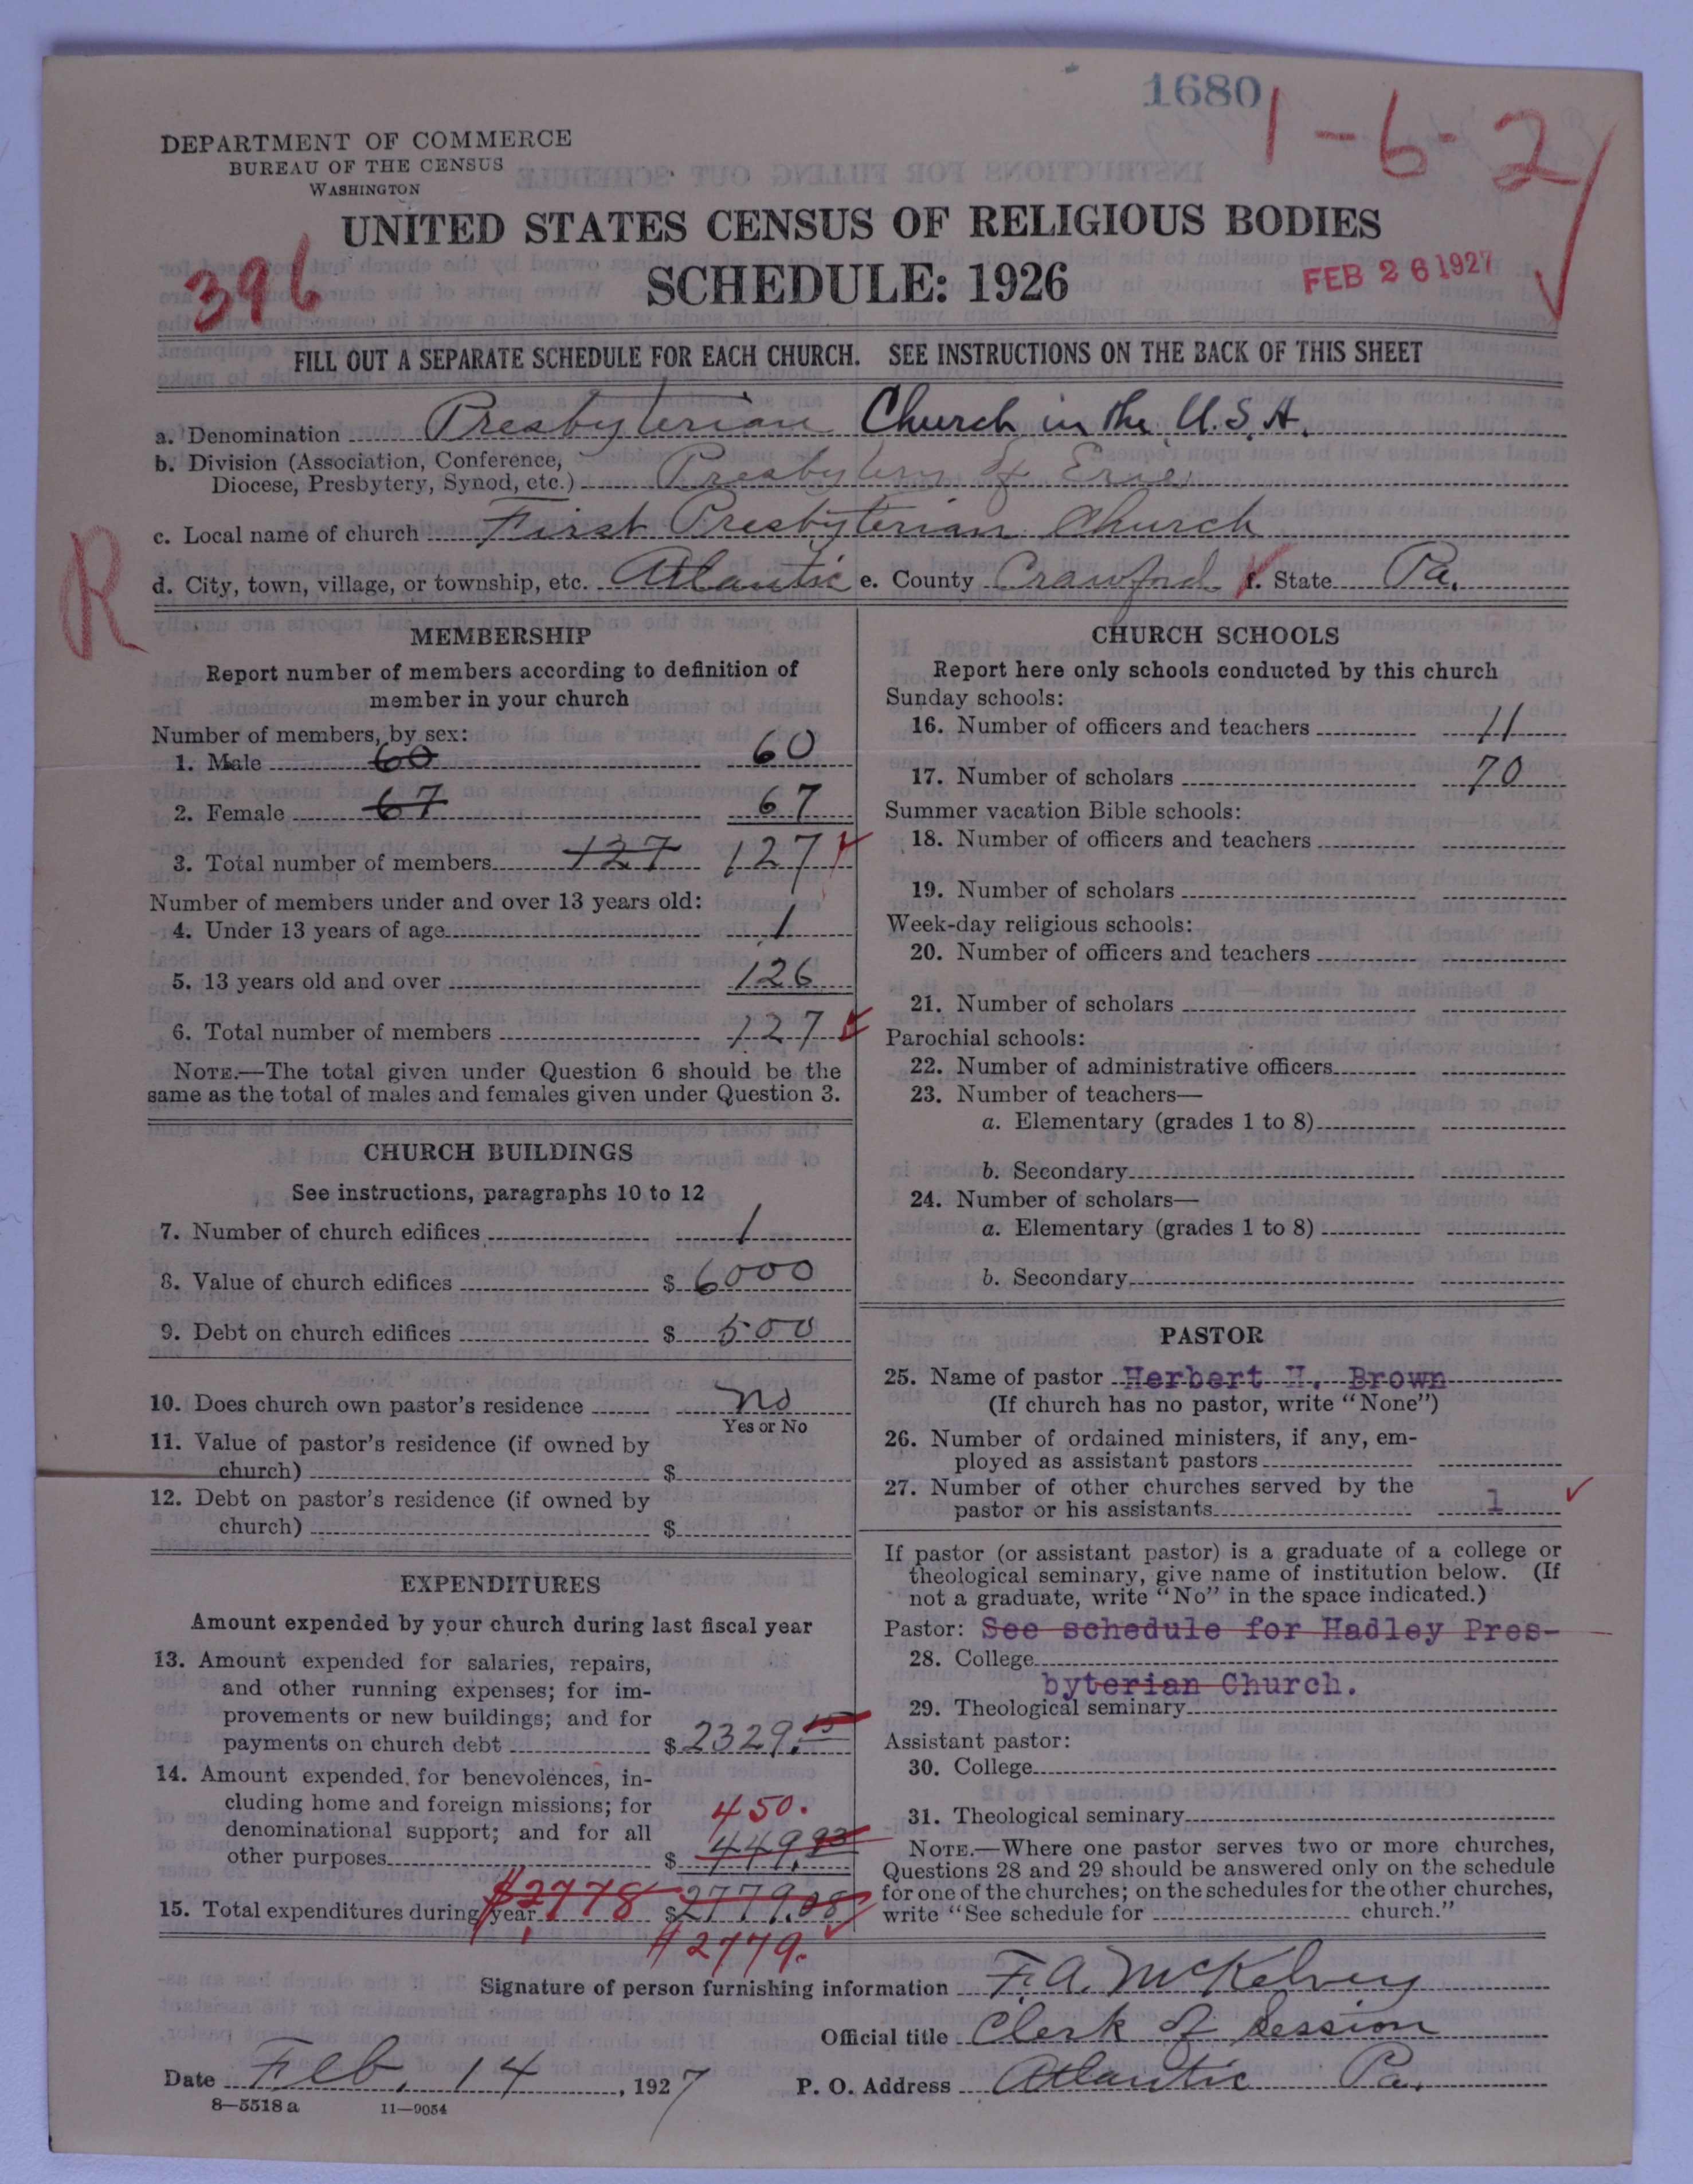 1680
1-6-2
DEPARTMENT OF COMMERCE
BUREAU OF THE CENSUS
WASHINGTON
UNITED STATES CENSUS OF RELIGIOUS BODIES
396
SCHEDULE: 1926
FEB 26 1927
FILL OUT A SEPARATE SCHEDULE FOR EACH CHURCH. SEE INSTRUCTIONS ON THE BACK OF THIS SHEET
a. Denomination Presbyterian Church in the U.S.A.
b. Division (Association, Conference,
Diocese, Presbytery, Synod, etc.) Presbytery of Erie
c. Local name of church First Presbyterian Church
R
d. City, town, village, or township, etc. Atlantic e. County Crawford f. State Pa.
MEMBERSHIP
Report number of members according to definition of
member in your church
Number of members, by sex:
1. Male 60 60
2. Female 67 67
3. Total number of members 127 127
Number of members under and over 13 years old:
4. Under 13 years of age 1
5. 13 years old and over 126
6. Total number of members 127
NOTE.—The total given under Question 6 should be the
same as the total of males and females given under Question 3.
CHURCH BUILDINGS
See instructions, paragraphs 10 to 12
7. Number of church edifices 1
8. Value of church edifices $ 6000
9. Debt on church edifices $ 500
10. Does church own pastor's residence No
Yes or No
11. Value of pastor's residence (if owned by
church) $
12. Debt on pastor's residence (if owned by
church) $
EXPENDITURES
Amount expended by your church during last fiscal year
13. Amount expended for salaries, repairs,
and other running expenses; for im-
provements or new buildings; and for
payments on church debt $ 2329.15
14. Amount expended for benevolences, in-
cluding home and foreign missions; for
denominational support; and for all
450.
other purposes $ 449.93
15. Total expenditures during year $2778 $2779.08
$2779.
CHURCH SCHOOLS
Report here only schools conducted by this church
Sunday schools:
16. Number of officers and teachers 11
17. Number of scholars 70
Summer vacation Bible schools:
18. Number of officers and teachers
19. Number of scholars
Week-day religious schools:
20. Number of officers and teachers
21. Number of scholars
Parochial schools:
22. Number of administrative officers
23. Number of teachers—
a. Elementary (grades 1 to 8)
b. Secondary
24. Number of scholars—
a. Elementary (grades 1 to 8)
b. Secondary
PASTOR
25. Name of pastor Herbert H. Brown
(If church has no pastor, write "None")
26. Number of ordained ministers, if any, em-
ployed as assistant pastors
27. Number of other churches served by the
pastor or his assistants 1
If pastor (or assistant pastor) is a graduate of a college or
theological seminary, give name of institution below. (If
not a graduate, write "No" in the space indicated.)
Pastor: See schedule for Hadley Pres-
28. College
byterian Church.
29. Theological seminary
Assistant pastor:
30. College
31. Theological seminary
NOTE.—Where one pastor serves two or more churches,
Questions 28 and 29 should be answered only on the schedule
for one of the churches; on the schedules for the other churches,
write "See schedule for church."
Signature of person furnishing information F. A. McKelvey
Official title Clerk of Session
Date Feb. 14, 1927 P. O. Address Atlantic Pa.
8—5518 a 11—9054